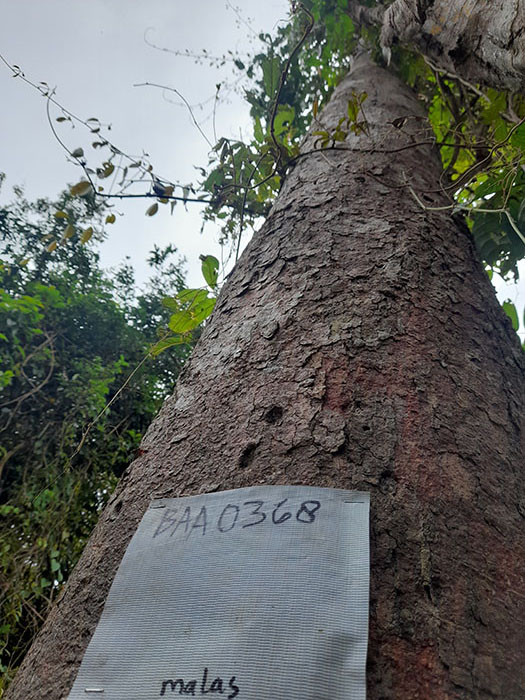 BAA0368
malas